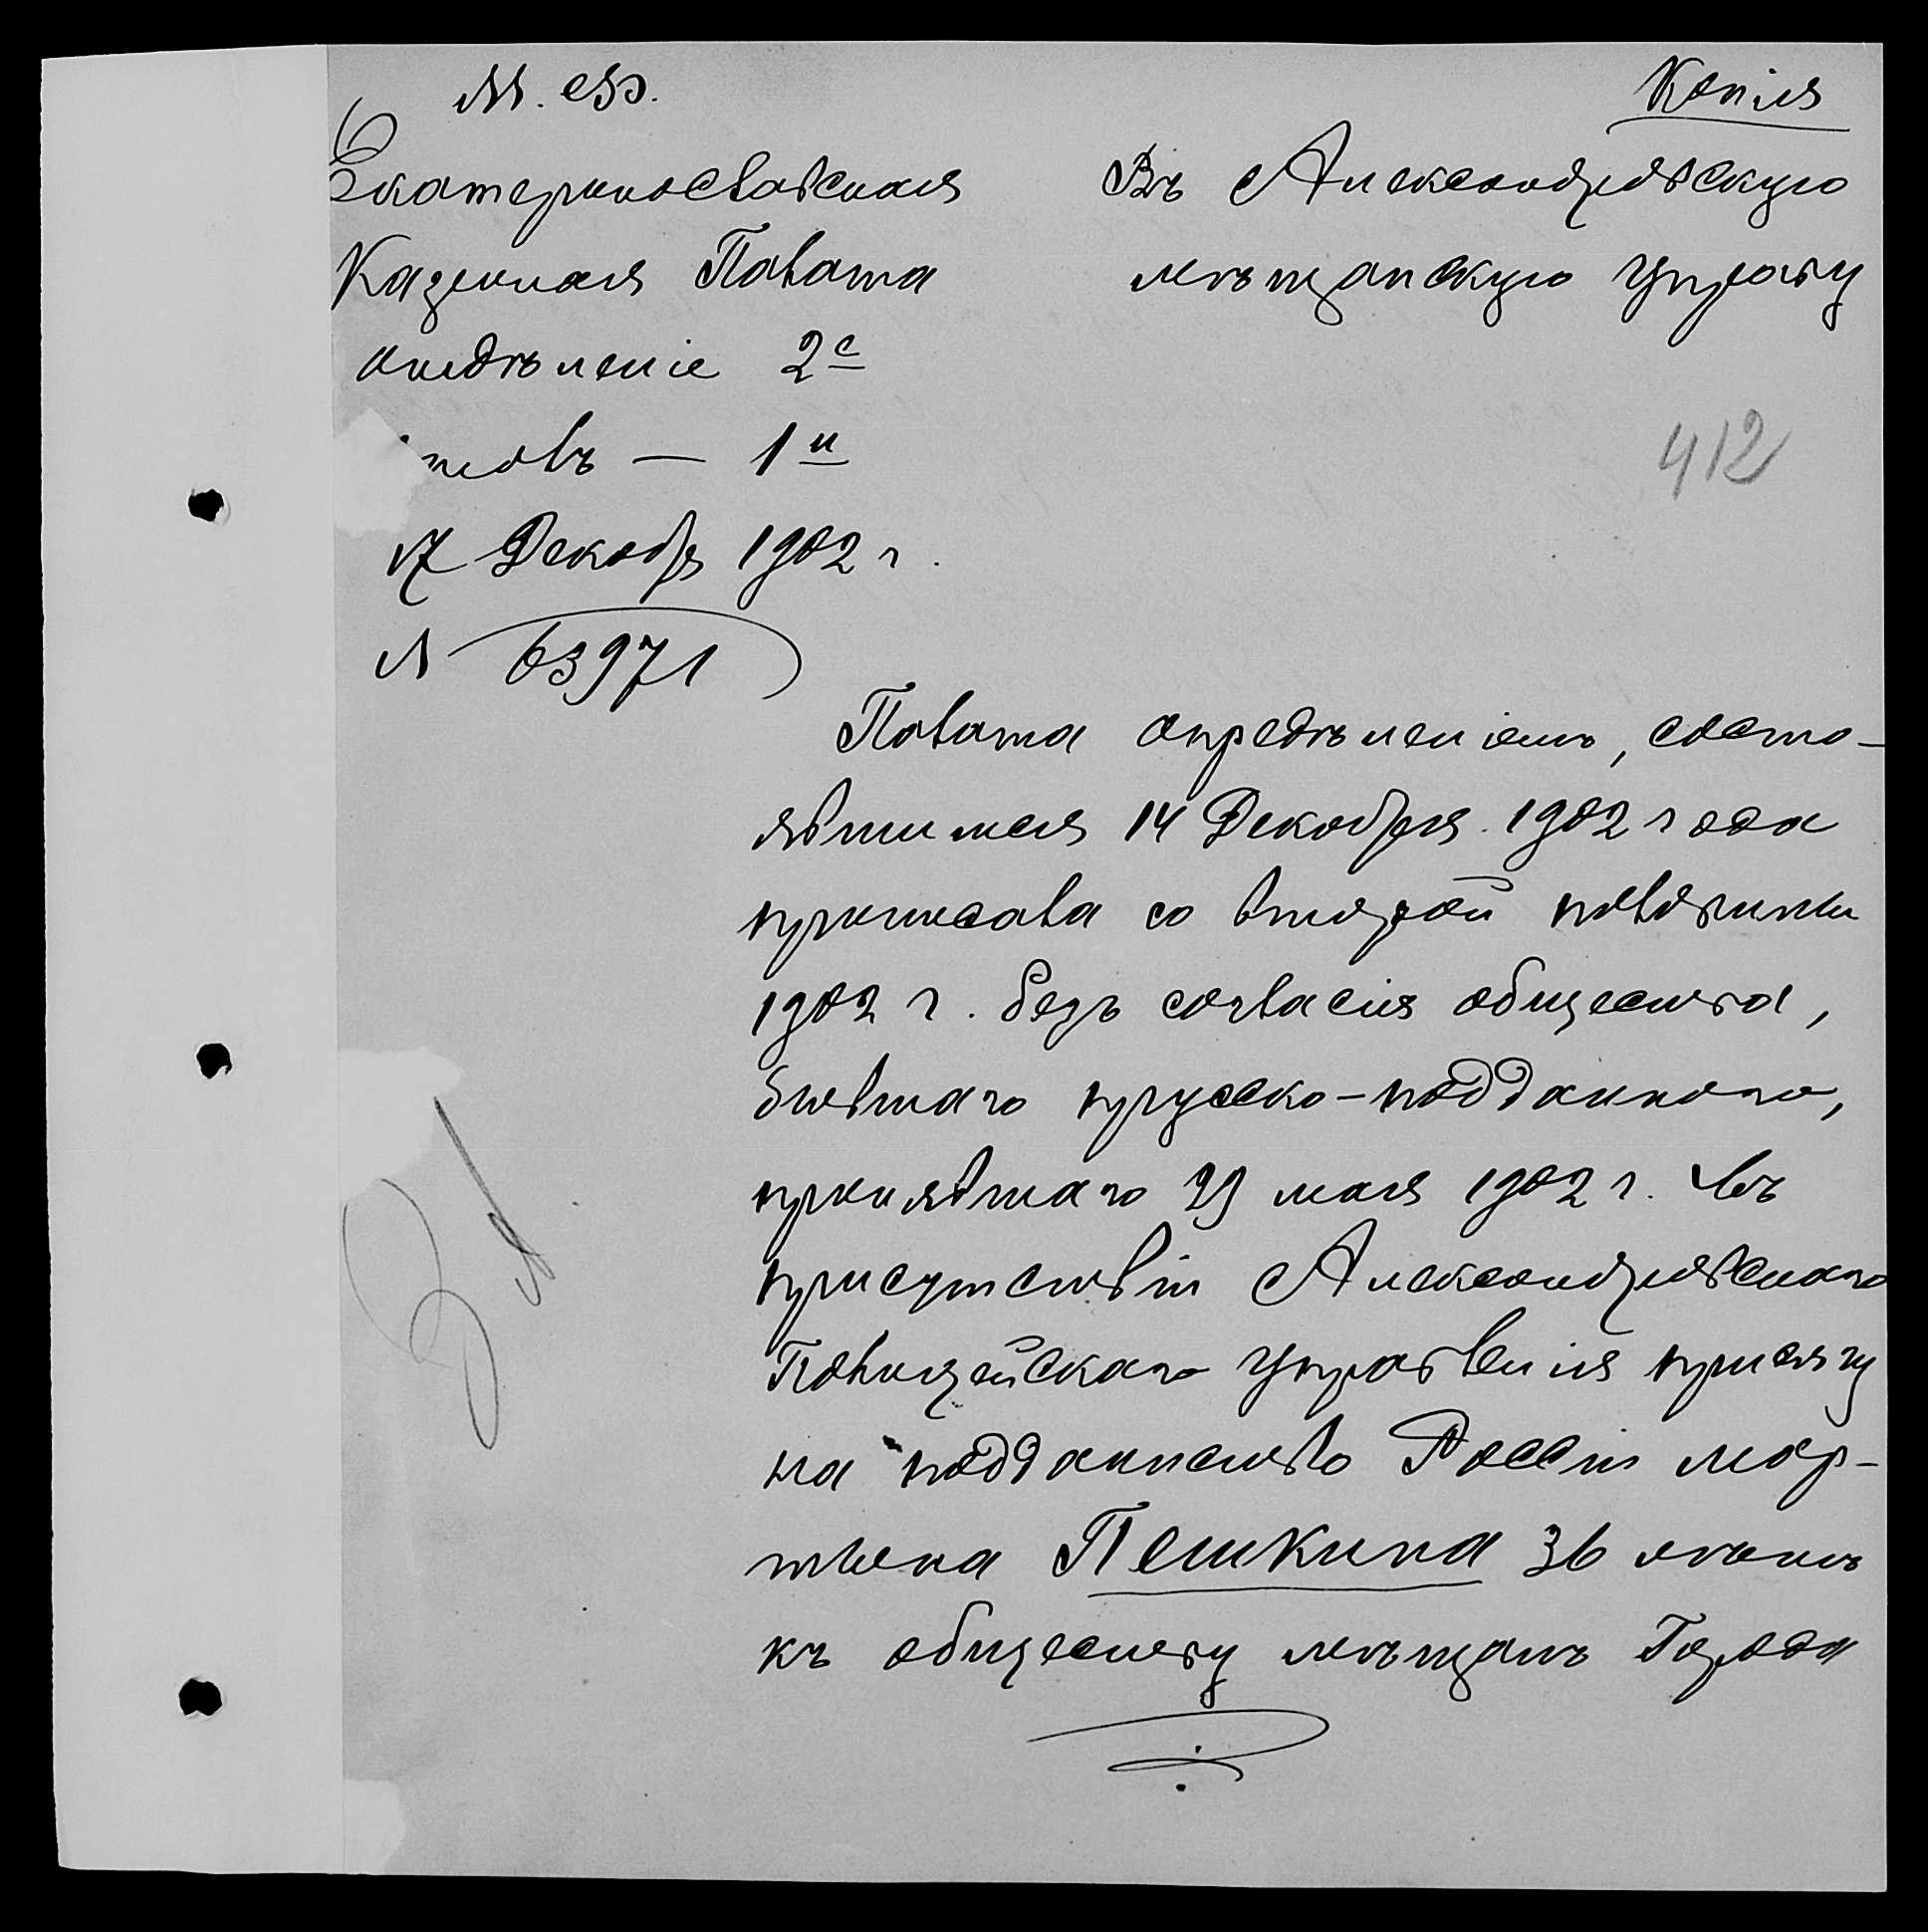 М. Ф.
Копія
Екатеринославская
Казенная Палата
Отдѣленіе 2е
столъ — 1й
17 Декабря 1902 г.
№ 63971
Въ Александровскую
мѣщанскую управу
412
Палата опредѣленіемъ, состо-
явшимся 14 Декабря 1902 года
приписала со второй половины
1902 г. безъ согласія общества,
бывшаго прусско-подданного,
принявшаго 29 мая 1902 г. въ
присутствіи Александровскаго
Полицейскаго Управленія присягу
на подданство Россіи Мар-
тына Пешкина 36 лѣтъ
къ обществу мѣщанъ Города